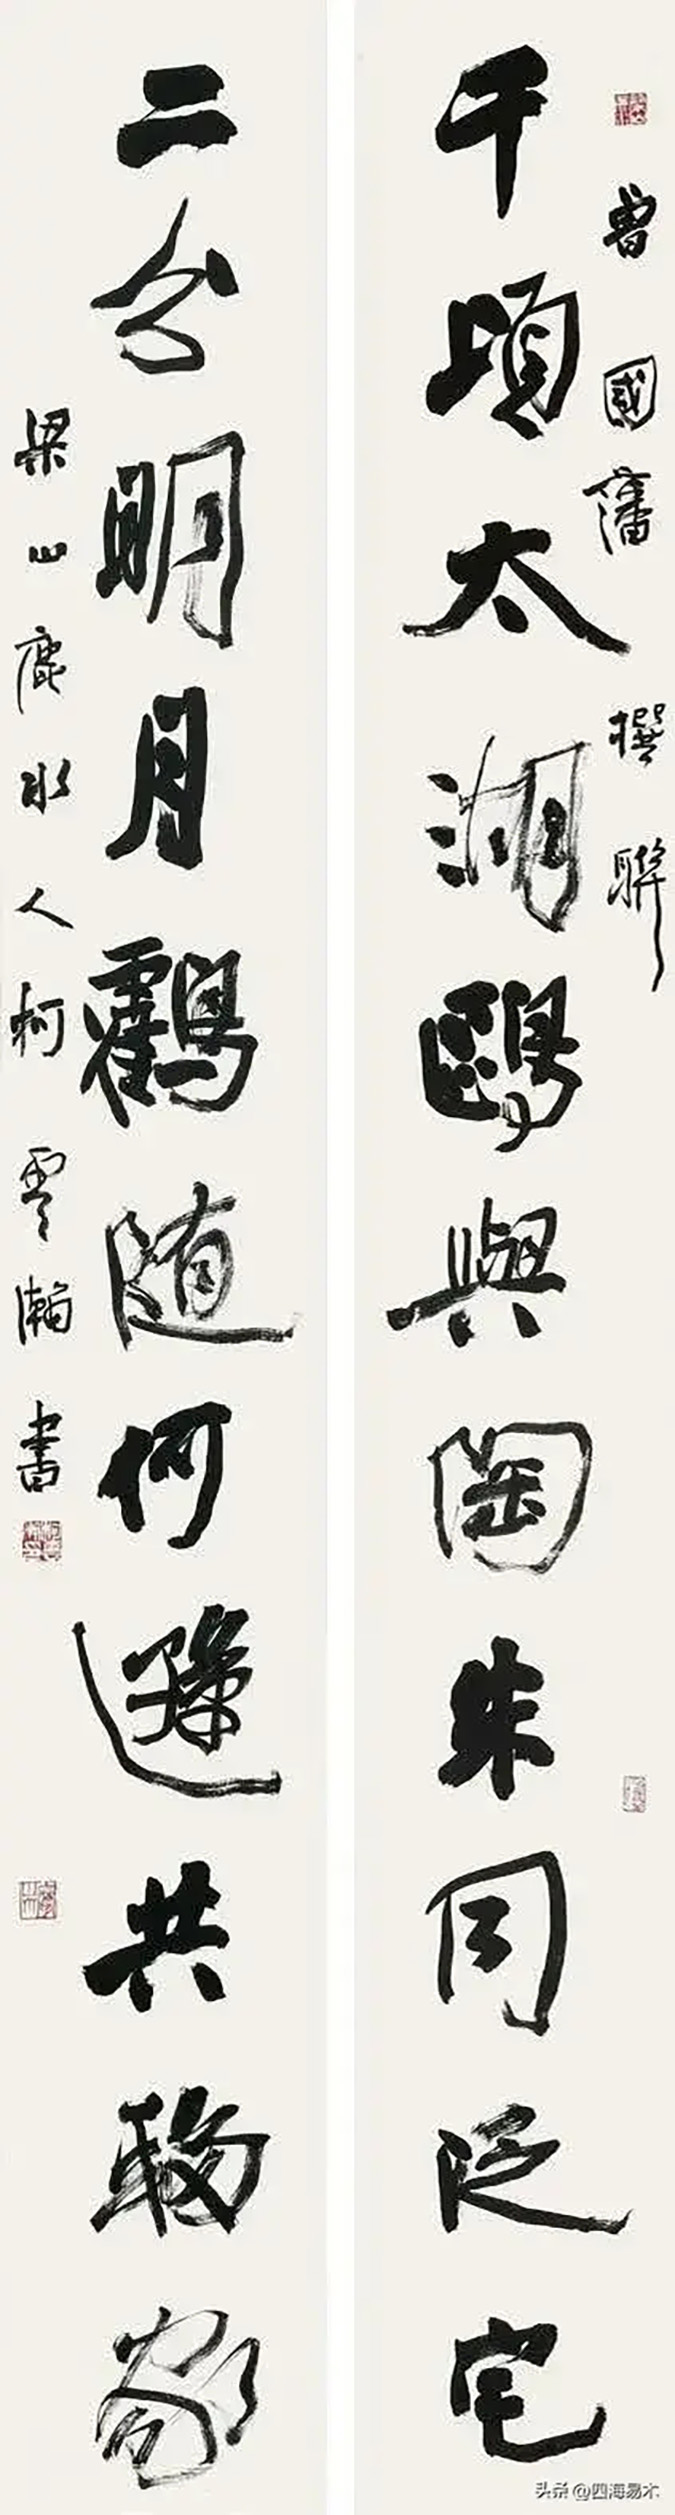 曾國藩撰聯
千頃太湖鷗與陶朱同泛宅
二分明月鶴随何遜共移家
梁山鹿水人柯雲瀚書
头条 @四海易木